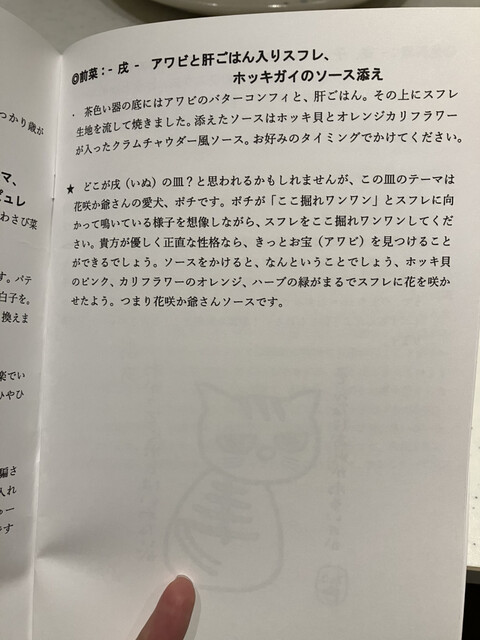 ◎前菜：- 戌 -　アワビと肝ごはん入りスフレ、
ホッキガイのソース添え
・ 茶色い器の底にはアワビのバターコンフィと、肝ごはん。その上にスフレ
生地を流して焼きました。添えたソースはホッキ貝とオレンジカリフラワー
が入ったクラムチャウダー風ソース。お好みのタイミングでかけてください。
★ どこが戌（いぬ）の皿？と思われるかもしれませんが、この皿のテーマは
花咲か爺さんの愛犬、ポチです。ポチが「ここ掘れワンワン」とスフレに向
かって鳴いている様子を想像しながら、スフレをここ掘れワンワンしてくだ
さい。貴方が優しく正直な性格なら、きっとお宝（アワビ）を見つけること
ができるでしょう。ソースをかけると、なんということでしょう、ホッキ貝
のピンク、カリフラワーのオレンジ、ハーブの緑がまるでスフレに花を咲か
せたよう。つまり花咲か爺さんソースです。
つかり歳が
マ、
ピュレ
わさび菜
す。パテ
白子を。
換えま
楽でい
ひやひ
騙さ
入れ
ゅー
です